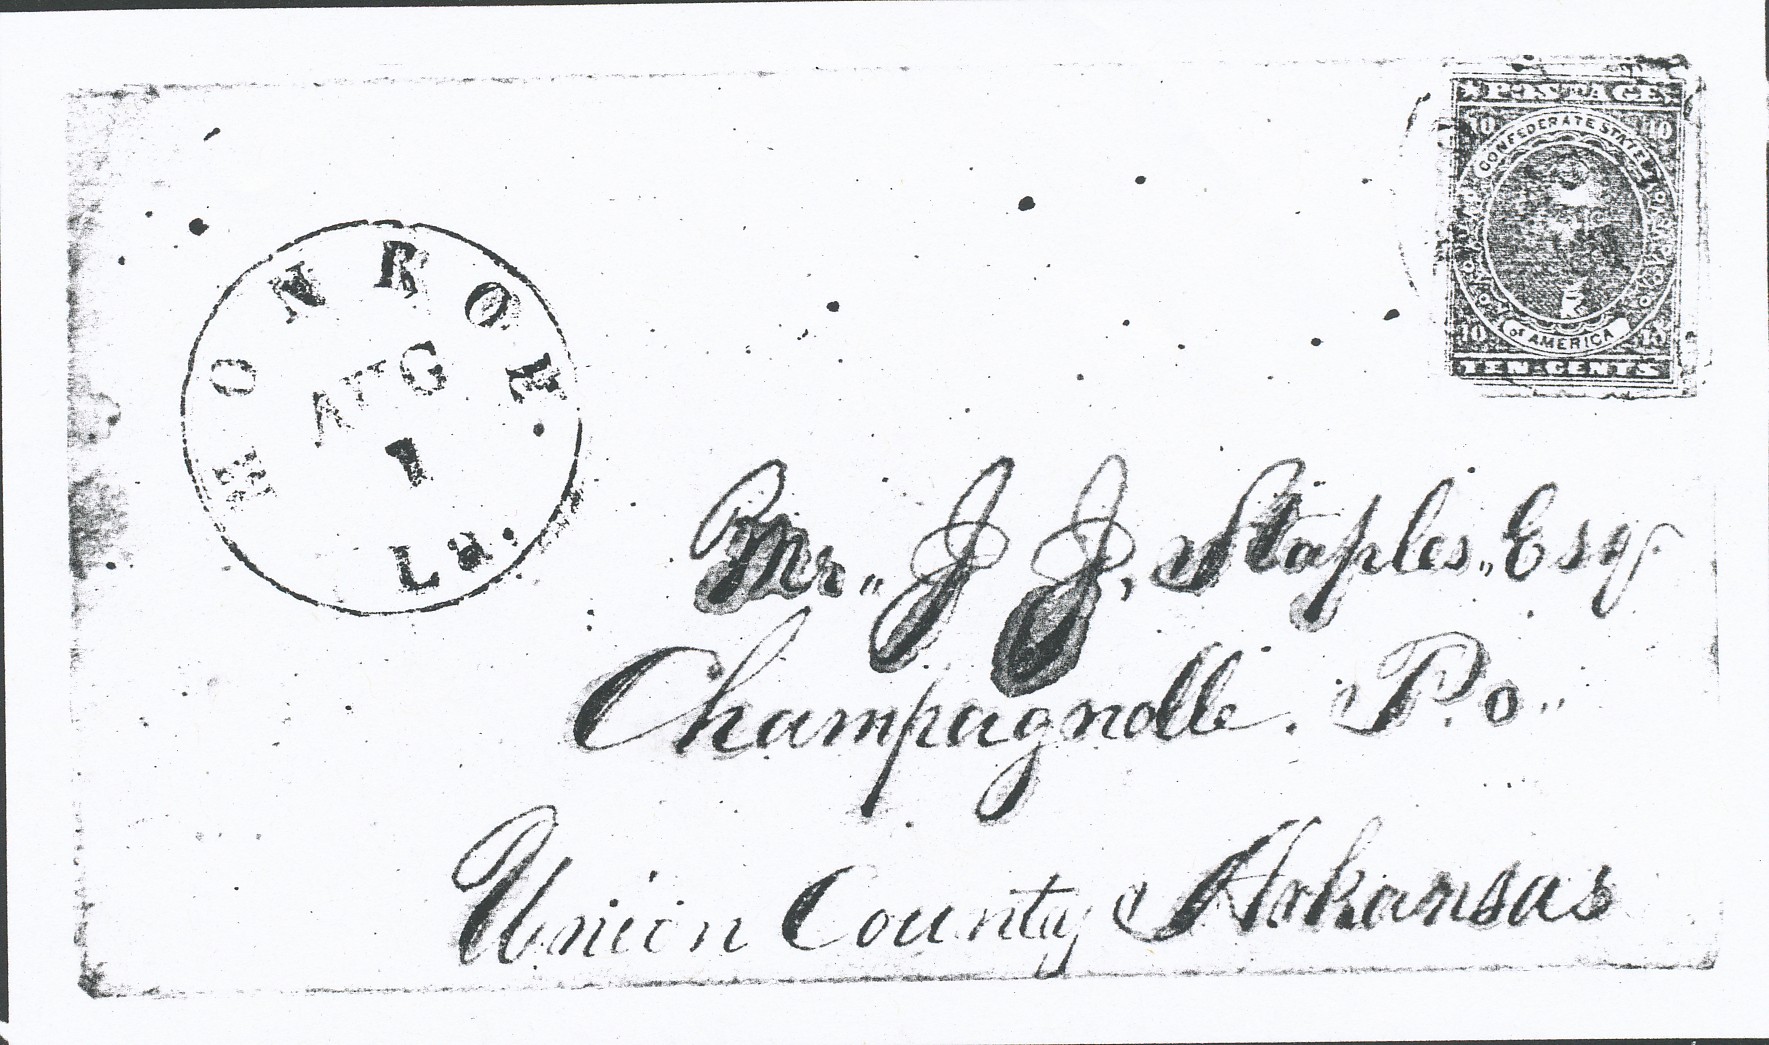 POSTAGE
10 10
CONFEDERATE STATES
OF AMERICA
10 10
TEN CENTS
MONROE
AUG
1
La.
Mr,, J J, Staples,, Esq.
Champagnolle. P.o,,
Union County Arkansas